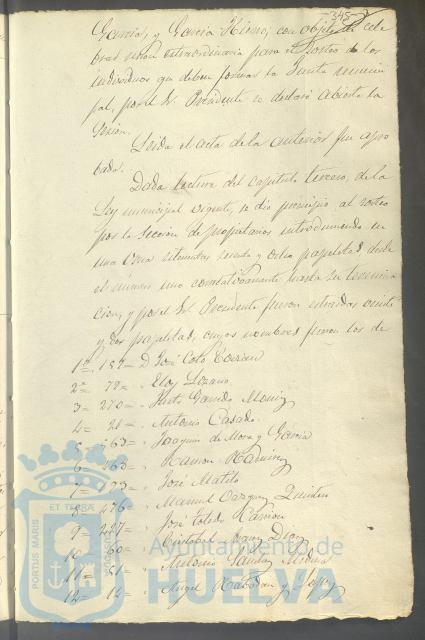 -345-
García, y García Rieno; con objeto de cele
brar sesión extraordinaria para el sorteo de los
individuos que deben formar la Junta munici
pal, por el Sr. Presidente se declaró abierta la
sesión.
Leida el acta de la anterior fue apro
bada.
Dada lectura del capitulo tercero, de la
Ley municipal vigente, se dio principio al sorteo
por la sección de propietarios introduciendo en
una Urna setenta y ocho papeletas, desde
el número uno correlativamente hasta su termina
cion, y por el Sr. Presidente fueron estraidas veinte
y dos papeletas, cuyos nombres fueron los de
1ª 189= D. José Coto
2ª 72= " Eloy Lozano.
3= 270= " Garrido Moniz
4= 28= " Antonio Casado
5= 563= " Joaquin de Mora y García
6= 263= " Ramon Ramirez
7= 73= " José Matilo
8= 476= " Manuel Vazquez
9= 247= " José Toledo Ramon
10= 60= " Cristobal Diaz
11= 51= " Antonio Sanchez Medina
12= 14= " Angel Rabadan y
PORTUS MARIS ET TERRÆ CUSTODIA
Ayuntamiento de
HUELVA